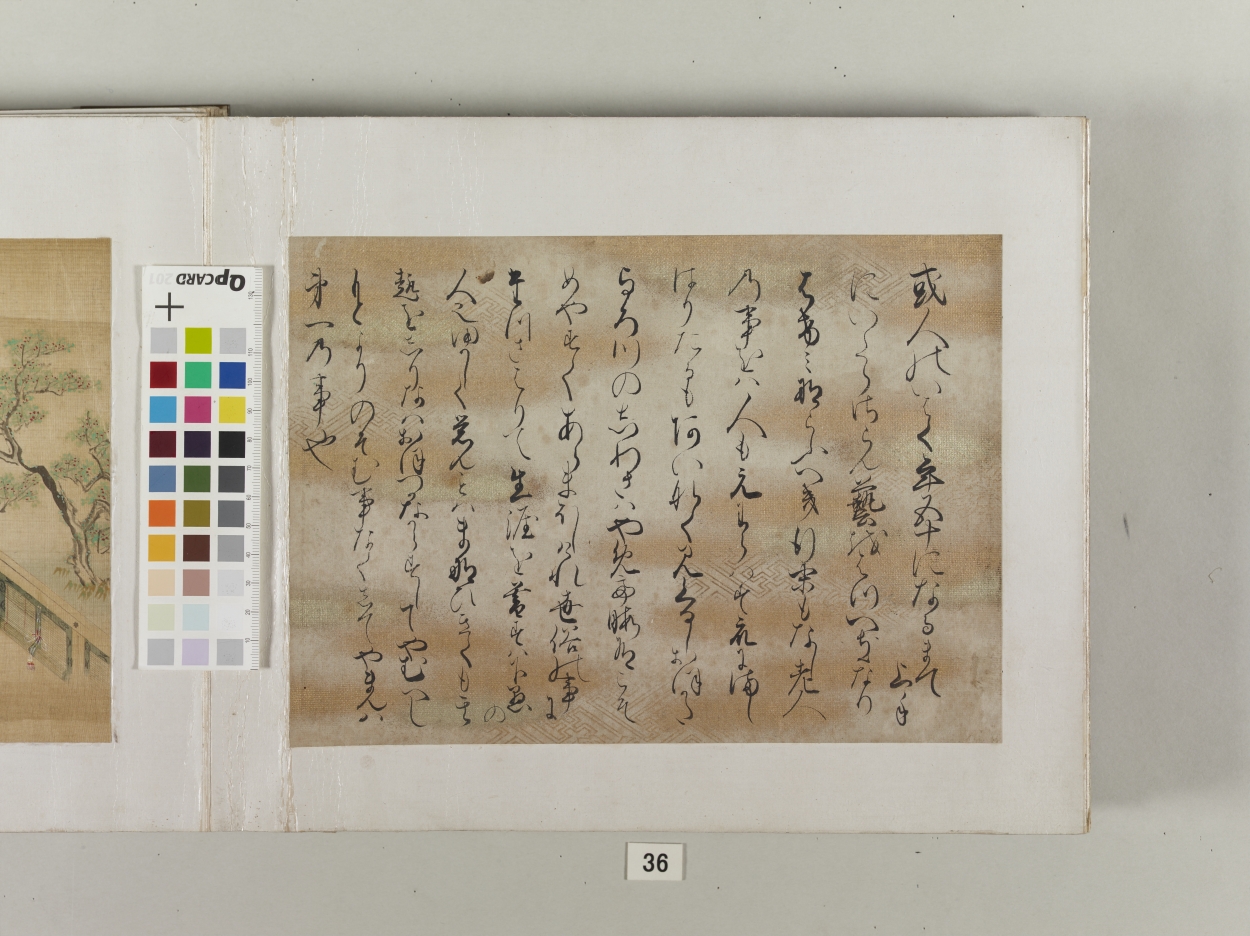 或人のいはく年五十になるまて上手
にいたらさらん藝をはすつへきなり
はけみならふへき行末もなし老人
の事をは人もえわらはす衆にまし
はりたるもあいなく見くるしおほかた
よろつのしわさはやめて暇あるこそ
めやすくあらまほしけれ世俗の事に
たつさはりて生涯を暮すは下愚の
人也ゆかしく覚えんことはまなひきくとも其
趣をしりなはおほつかなからすしてやむへし
もとよりのそむ事なくしてやまんは
第一の事也
QPCARD 201
36